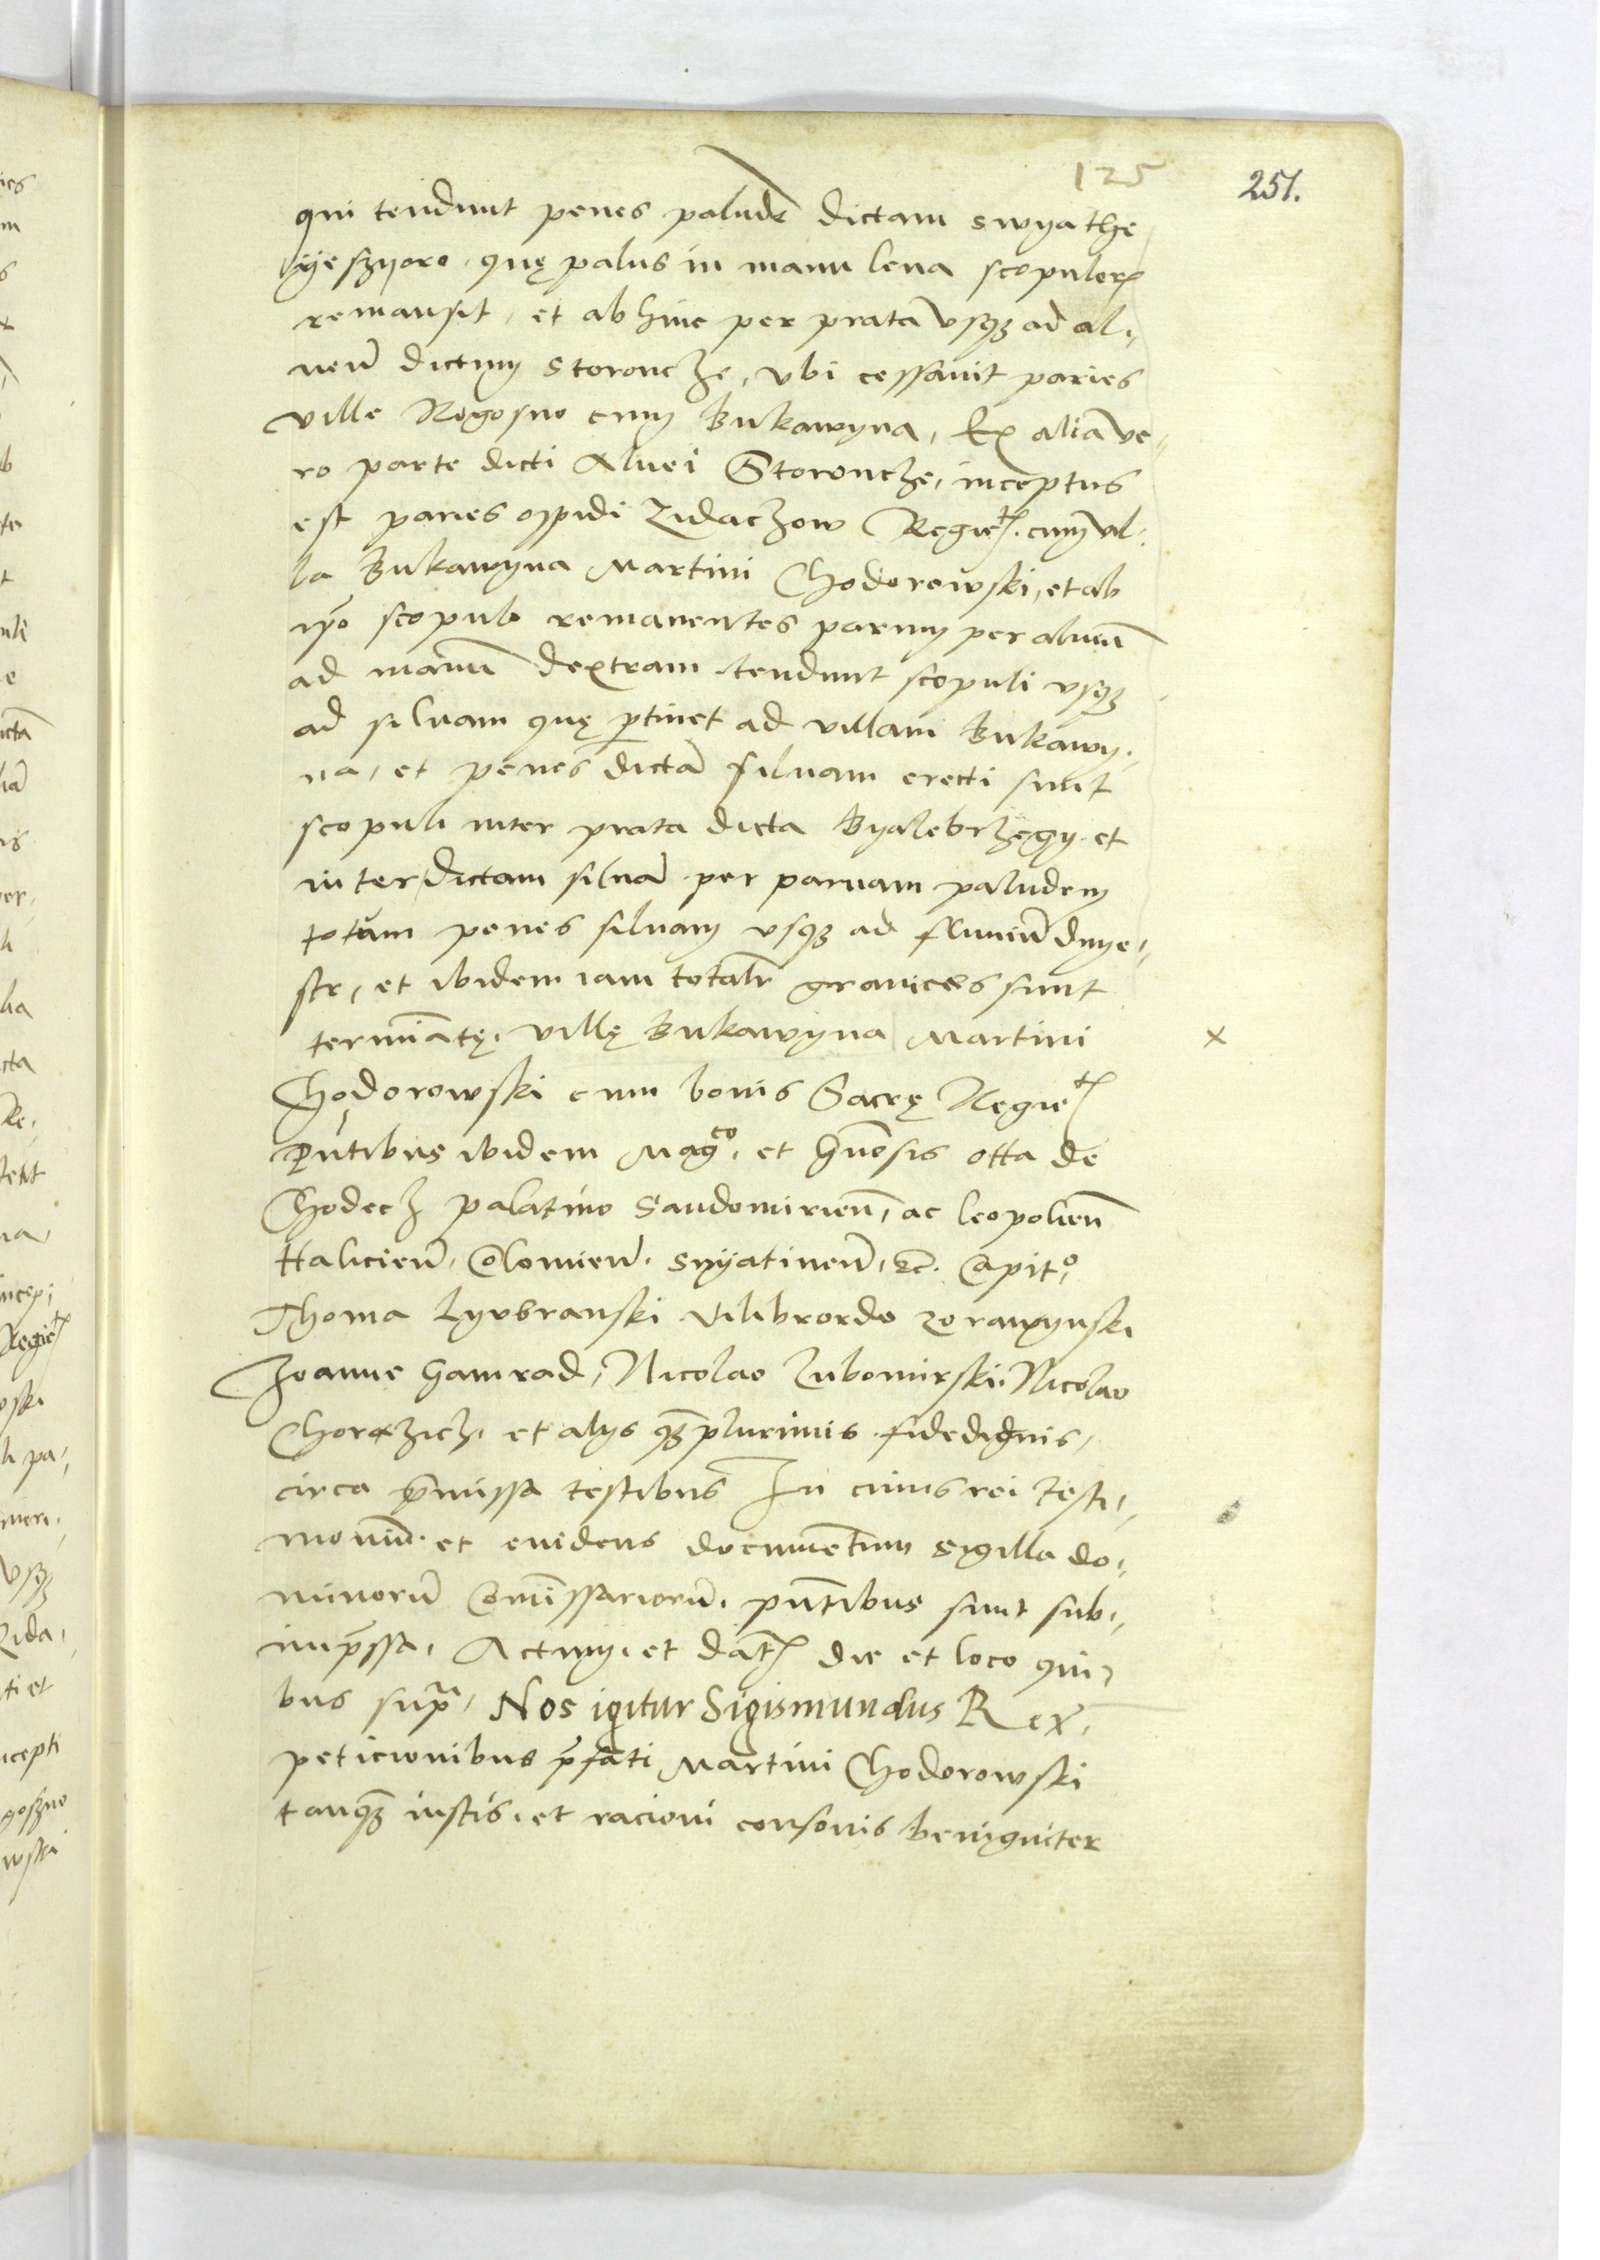 125
251.
qui tendunt penes paludē dictam swyathe
yeszyoro. quę palus in manu leua scopulorꝝ
remansit, et ab hinc per prata vsqꝫ ad al,
ueū dictum Storoncze, vbi cessauit paries
ville Rogosno cum Bukawyna, Ex alia ve,
ro parte dicti Aluei Storoncze, inceptus
est paries oppidi Zidaczow Regieꝭ. cum vil,
la Bukawyna Martini Chodorowski, et ab
ipō scopulo remanentes parum per alueū
ad manū dextram tendunt scopuli vsqꝫ
ad siluam quę ptinet ad villam Bukawy,
na, et penes dictā siluam erecti sunt
scopuli inter prata dicta Byalebrzegy et
inter dictam siluā per paruam paludem
totam penes siluam vsqꝫ ad fluuiū dnye,
str, et ibidem iam totalr granicies sunt
termiātę. villę Bukawyna Martini
x
Chodorowski cum bonis Sacrę Regieꝭ
Pn̄tibus ibidem Mag^co. et gn̄osis otta de
Chodecz palatino Sandomirien̄, ac leopolien̄
Halicien̄, Colomien̄. Snyatinen̄, ꝛc̄. Capit^o,
Thoma Lyvbranski Vilibrordo Zorawynski
Joanne Gamrad, Nicolao Lubomirski. Nicolao
et alijs qꝫplurimis fidedignis,
circa p̄missa testibus In cuius rei testi,
moniū. et euidens documentum sigilla do,
minorū Comissariorū. pn̄tibus sunt sub,
imp̄ssa, Actum. et datꝭ die et loco qui,
bus supra, Nos igitur Sigismundus Rex,
peticionibus p̄fati Martini Chodorowski
tanqꝫ iustis, et racioni consonis benigniter